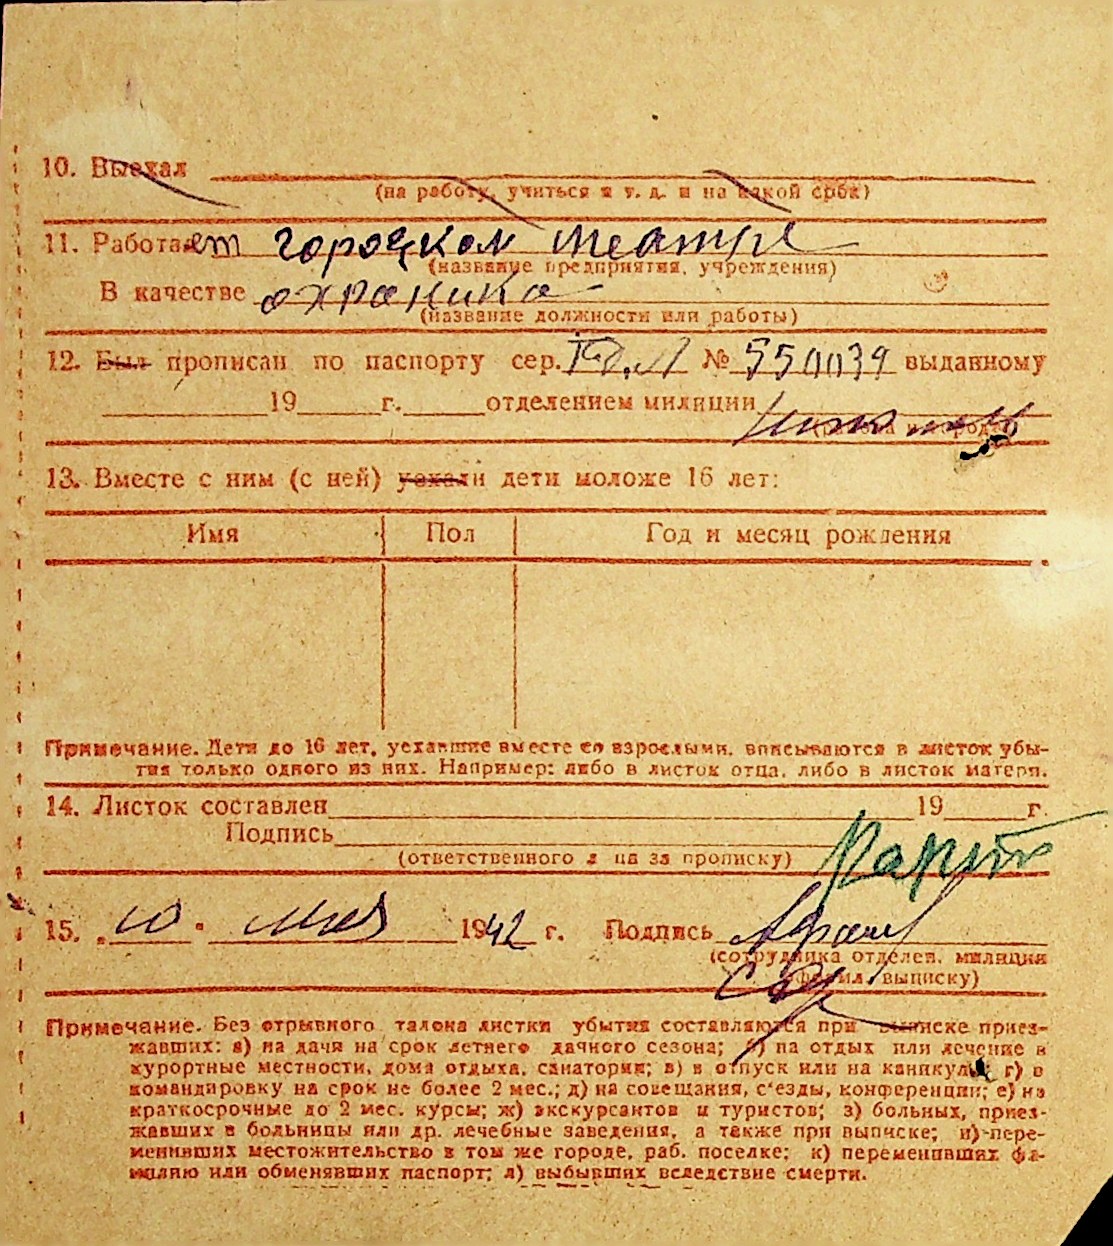 10. Выехал
(на работу, учиться и т. д. и на какой срок)
11. Работает городском театре
(название предприятия, учреждения)
В качестве охраника
(название должности или работы)
12. Был прописан по паспорту сер. № 550039 выданному
19 г. отделением милиции
13. Вместе с ним (с ней) уехали дети моложе 16 лет:
Имя Пол Год и месяц рождения
Примечание. Дети до 16 лет, уехавшие вместе со взрослыми, вписываются в листок убы-
тия только одного из них. Например: либо в листок отца, либо в листок матери.
14. Листок составлен 19 г.
Подпись
(ответственного за прописку)
15. "10" мая 1942 г. Подпись
(сотрудника отделен. милиции
выписку)
Примечание. Без отрывного талона листки убытия составляются при выписке приез-
жавших: а) на дачи на срок летнего дачного сезона; б) на отдых или лечение в
курортные местности, дома отдыха, санатории; в) в отпуск или на каникулы; г) в
командировку на срок не более 2 мес.; д) на совещания, с'езды, конференции; е) на
краткосрочные до 2 мес. курсы; ж) экскурсантов и туристов; з) больных, приез-
жавших в больницы или др. лечебные заведения, а также при выписке; и) пере-
менивших местожительство в том же городе, раб. поселке; к) переменивших фа-
милию или обменявших паспорт; л) выбывших вследствие смерти.